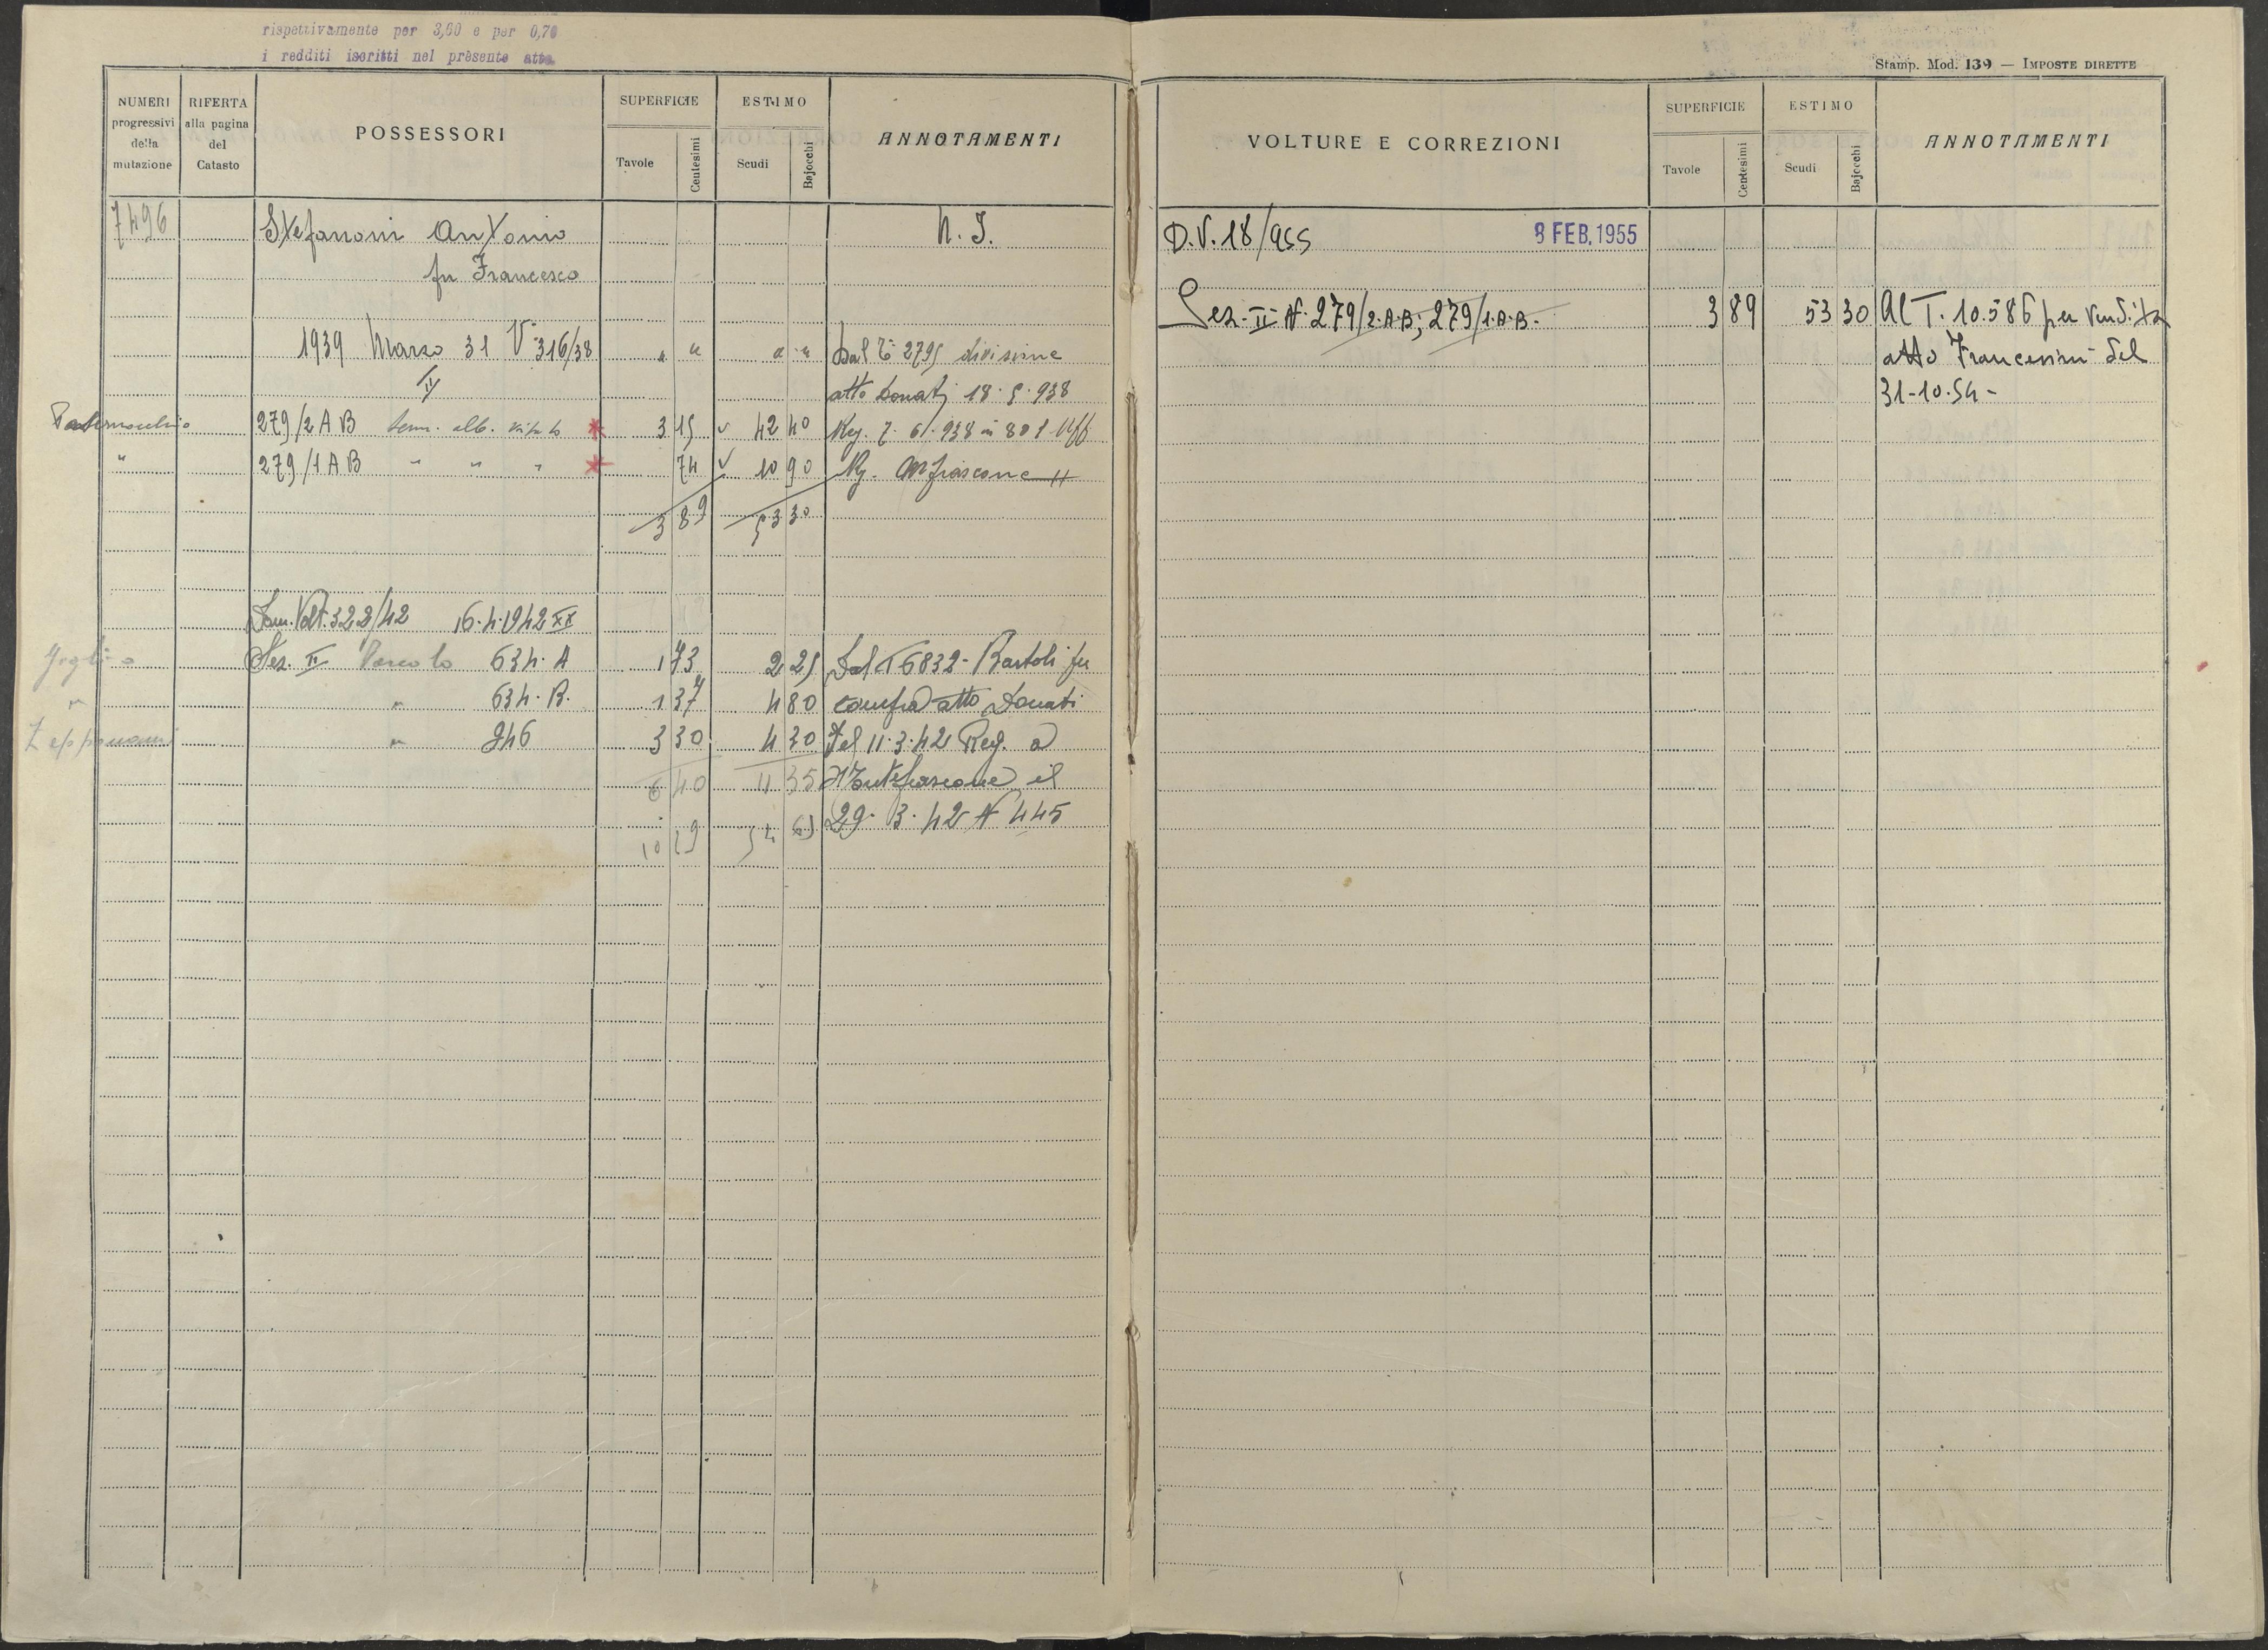 rispettivamente per 3,60 e per 0,70
i redditi iscritti nel presente atto
NUMERI progressivi della mutazione
RIFERTA alla pagina del Catasto
POSSESSORI
SUPERFICIE
Tavole
Centesimi
ESTIMO
Scudi
Bajocchi
ANNOTAMENTI
7496 Stefanoni Antonio N. I.
fu Francesco
1939 Marzo 31 V 316/38 " " " " Dal T 2795 divisione
II atto Donati 18.5.938
279/2 A B Sem. alb. vitato 3 15 42 40 Reg. 7.6.938
279/1 A B " " " 74 10 90 Rg.
3 89 53 30
Dom. Volt. 322/42 16.4.1942 XX
Sez. II Pascolo 634. A 1 73 2 25 Dal T 6832 Bartoli per
" " 634. B. 1 37 4 80 compra atto Donati
" 246 3 30 4 30 del 11.3.42 Reg. a
6 40 11 35 Montefiascone il
10 29 54 65 29.3.42 N 445
Stamp. Mod. 139 — IMPOSTE DIRETTE
VOLTURE E CORREZIONI
SUPERFICIE
Tavole
Centesimi
ESTIMO
Scudi
Bajocchi
ANNOTAMENTI
D.V. 18/955 8 FEB. 1955
Sez. II N. 279/2.A.B; 279/1.A.B. 3 89 53 30 Al T. 10.586 per vendita
atto Franceschini del
31-10-54-